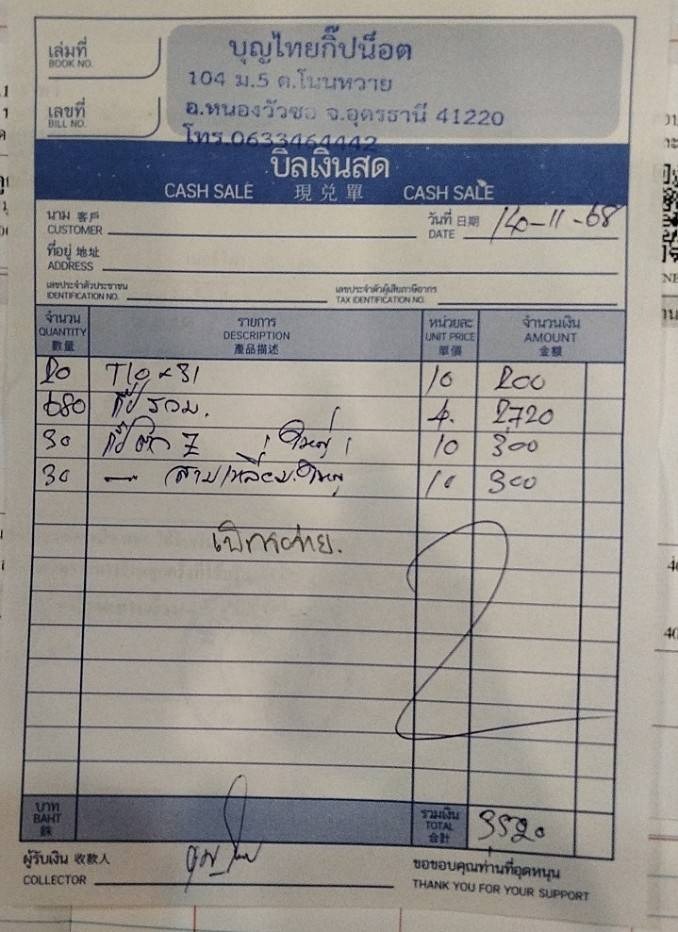 เล่มที่
BOOK NO.
เลขที่
BILL NO.
บุญไทยกิ๊ปน็อต
104 ม.5 ต.โนนหวาย
อ.หนองวัวซอ จ.อุดรธานี 41220
โทร.0633464442
บิลเงินสด
CASH SALE 現兌單 CASH SALE
นาม 客戶
CUSTOMER
วันที่ 日期
DATE 14-11-68
ที่อยู่ 地址
ADDRESS
เลขประจำตัวประชาชน
IDENTIFICATION NO.
เลขประจำตัวผู้เสียภาษีอากร
TAX IDENTIFICATION NO.
จำนวน
QUANTITY
數量
รายการ
DESCRIPTION
產品描述
หน่วยละ
UNIT PRICE
單價
จำนวนเงิน
AMOUNT
金額
20 T10 x 31 10 200
680 กิ๊ปรวม. 4. 2720
30 กิ๊ปตัว Z ใหญ่ 10 300
30 — สามเหลี่ยมใหญ่ 10 300
บาท
BAHT
銖
รวมเงิน
TOTAL
合計
3520
ผู้รับเงิน 收款人
COLLECTOR
ขอขอบคุณท่านที่อุดหนุน
THANK YOU FOR YOUR SUPPORT